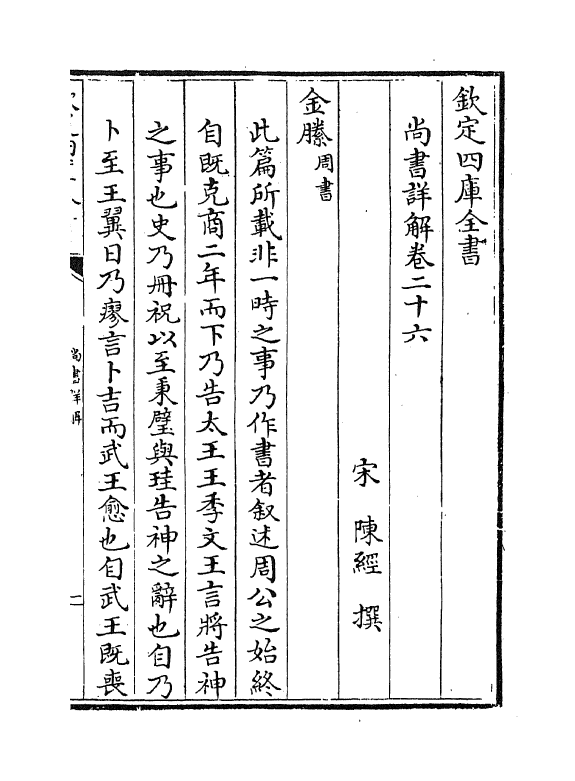 欽定四庫全書
尚書詳解卷二十六
宋 陳經 撰
金縢周書
此篇所載非一時之事乃作書者叙述周公之始終
自既克商二年而下乃告太王王季文王言將告神
之事也史乃冊祝以至秉璧與珪告神之辭也自乃
卜至王翼日乃瘳言卜吉而武王愈也自武王既喪
尚書詳解